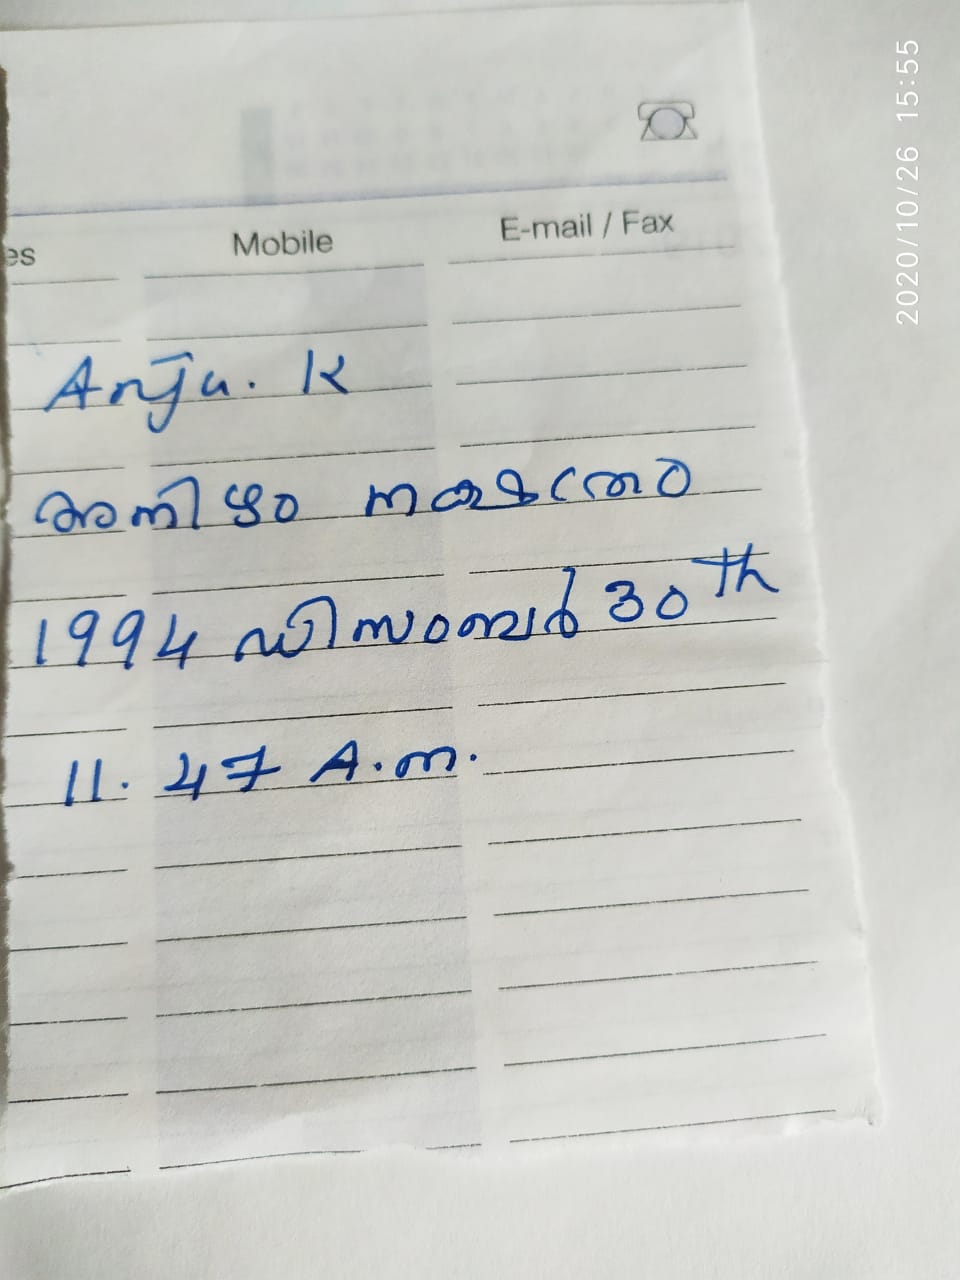 2020/10/26 15:55
es Mobile E-mail / Fax
Anju. K
അനിഴം നക്ഷത്രം
1994 ഡിസംബർ 30th
11. 47 A.m.